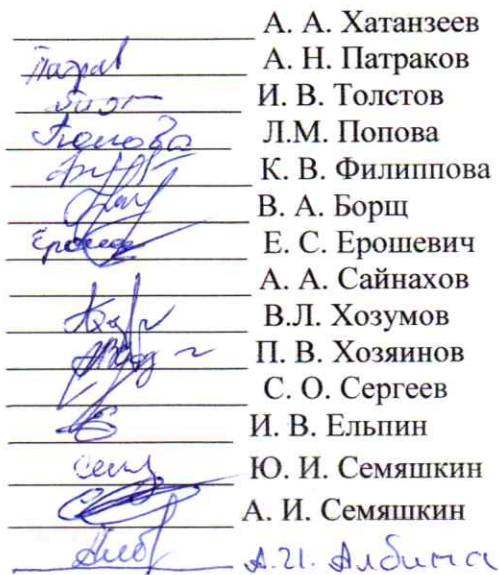 А. А. Хатанзеев
А. Н. Патраков
И. В. Толстов
Попова Л.М. Попова
К. В. Филиппова
В. А. Борщ
Е. С. Ерошевич
А. А. Сайнахов
В.Л. Хозумов
П. В. Хозяинов
С. О. Сергеев
И. В. Ельпин
Ю. И. Семяшкин
А. И. Семяшкин
А.И.